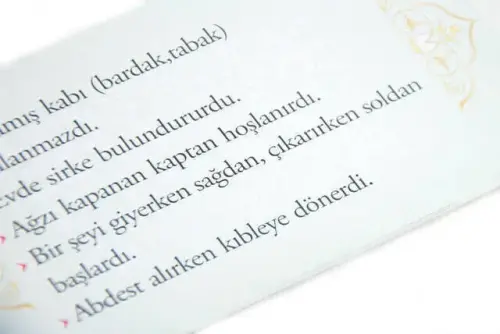 kabı (bardak,tabak)
Evde sirke bulundururdu.
Ağzı kapanan kaptan hoşlanırdı.
Bir şeyi giyerken sağdan, çıkarırken soldan
başlardı.
Abdest alırken kıbleye dönerdi.